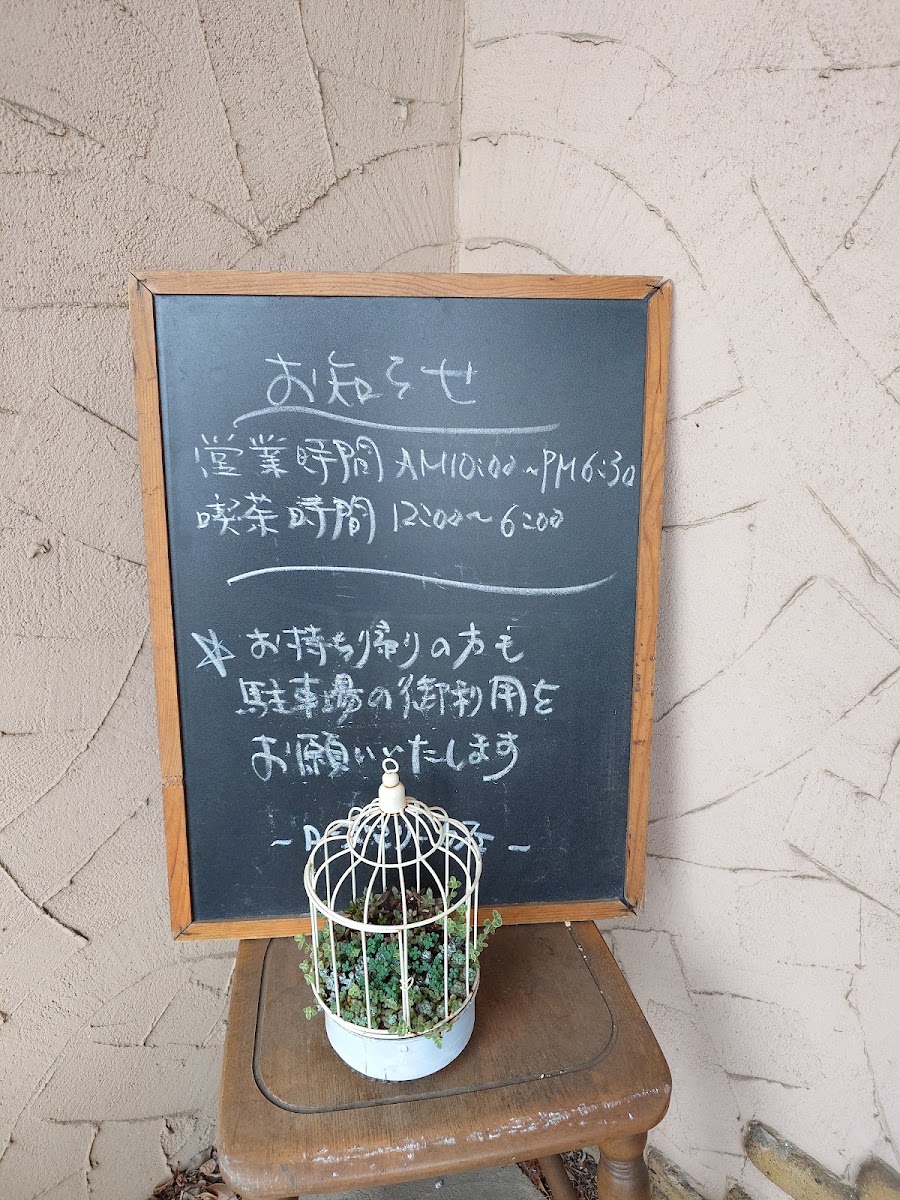 お知らせ
営業時間 AM10:00~PM6:30
喫茶時間 12:00~6:00
☆ お持ち帰りの方も
駐車場の御利用を
お願いいたします